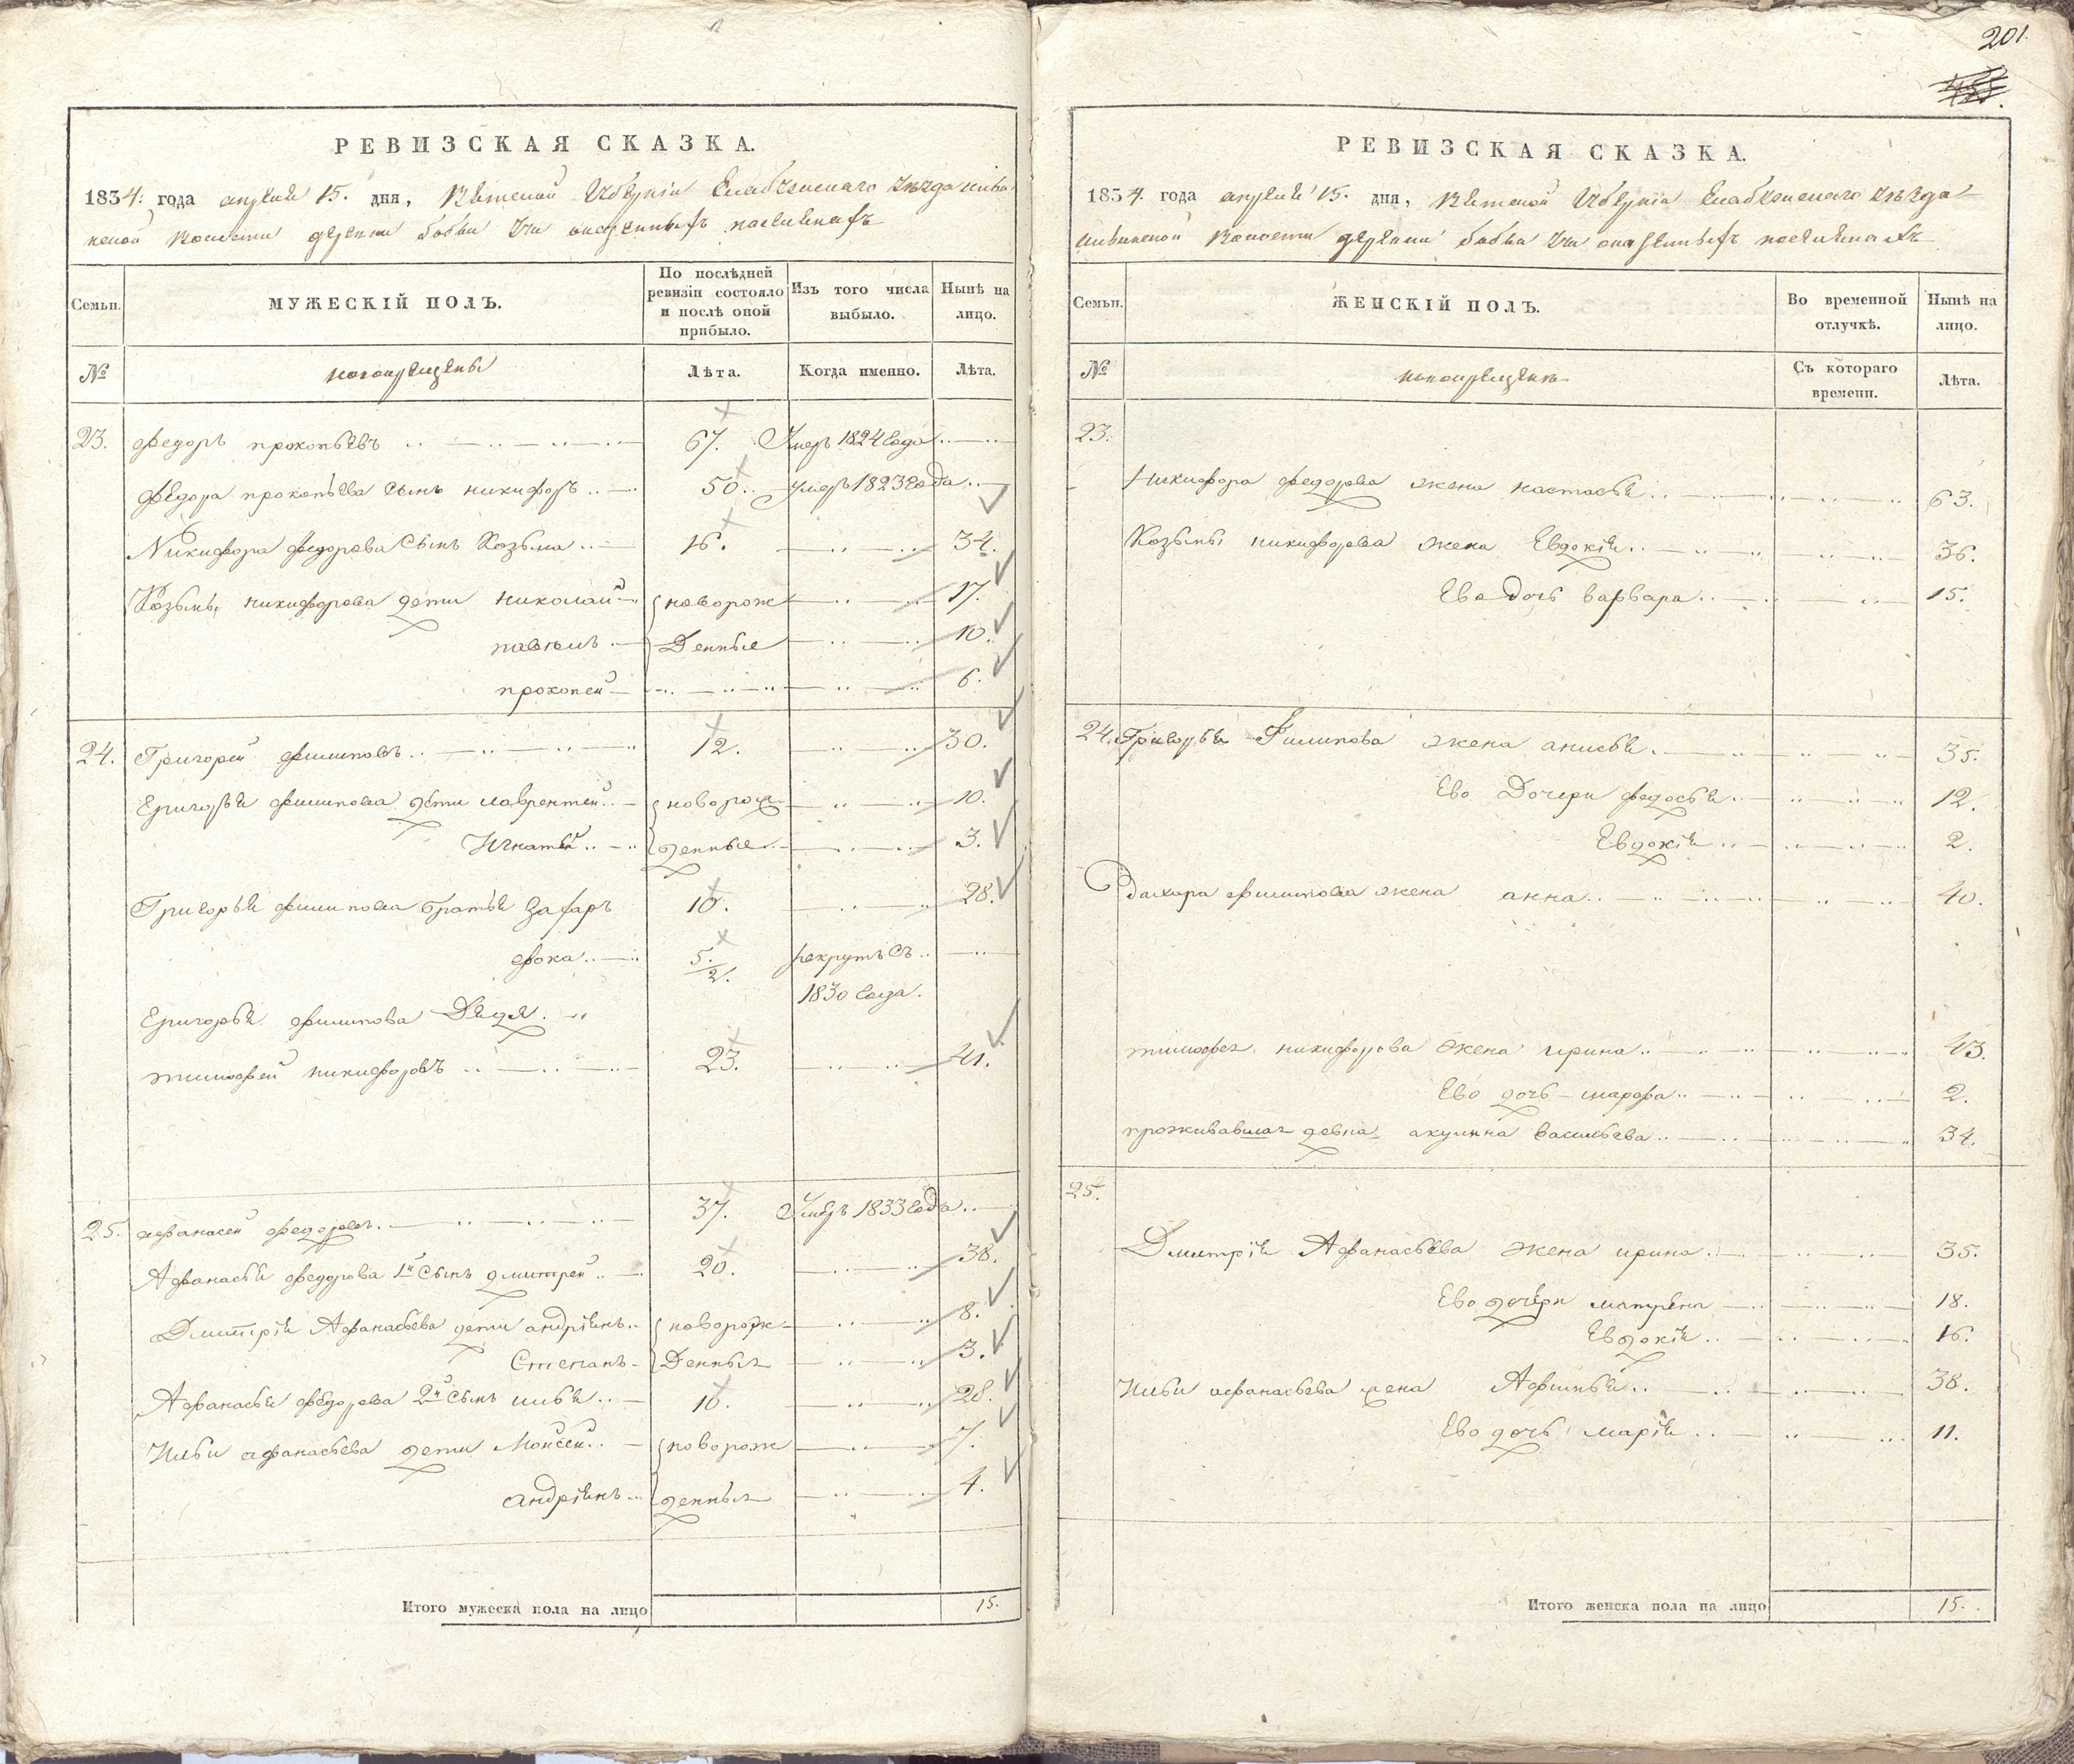 РЕВИЗСКАЯ СКАЗКА.
1834. года апреля 15. дня, Вятской Губернiи Елабужскаго уѣзда
волости деревни бобьи Учи
Семьи.
МУЖЕСКІЙ ПОЛЪ.
По послѣдней ревизіи состояло и послѣ оной прибыло.
Изъ того числа выбыло.
Нынѣ на лицо.
№
новокрещены
Лѣта.
Когда именно.
Лѣта.
23. федоръ прокопьевъ 67. Умеръ 1824 Года
федора прокопьева сынъ никифоръ 50. умеръ 1823 года
Никифора федорова Сынъ Козьма 16. 34.
Козьмы никифорова дети николай новорож 17.
павелъ Денные 10.
прокопей 6.
24. Григорей филиповъ 12. 30.
Григорья филипова дети лаврентей новорож 10.
Игнатей денные 3.
Григорья филипова братья Захаръ 10. 28.
фока 5/2. рекрутъ съ
1830 года.
Григорья филипова Дядя
тимофей никифоровъ 23. 41.
25. афанасей федоровъ 37. Умеръ 1833 года
Афанасья федорова 1й Сынъ дмитрей 20. 38.
Дмитрія Афанасьева дети андріянъ новорож 8.
Степанъ Денныя 3.
Афанасья федорова 2й Сынъ илья 10. 28.
Ильи афанасьева дети Моисей новорож 7.
андріянъ денныя 4.
Итого мужеска пола на лицо 15.
201
РЕВИЗСКАЯ СКАЗКА.
1834. года апреля 15. дня, Вятской Губернiи Елабужскаго уѣзда
волости деревни бобьи Учи
Семьи.
ЖЕНСКІЙ ПОЛЪ.
Во временной отлучкѣ.
Нынѣ на лицо.
№
новокрещены
Съ котораго времени.
Лѣта.
23.
Никифора федорова жена настасья 63.
Козьмы никифорова жена Евдокія 36.
Ево дочь варвара 15.
24. Григорья Филипова жена анисья 35.
Ево Дочери федосья 12.
Евдокія 2.
Захара филипова жена анна 40.
тимофея никифорова жена ирина 43.
Ево дочь марфа 2.
проживавшая девка акулина васильева 34.
25.
Дмитрія Афанасьева жена ирина 35.
Ево дочери матрена 18.
Евдокія 16.
Ильи афанасьева жена Афимья 38.
Ево дочь марія 11.
Итого женска пола на лицо 15.